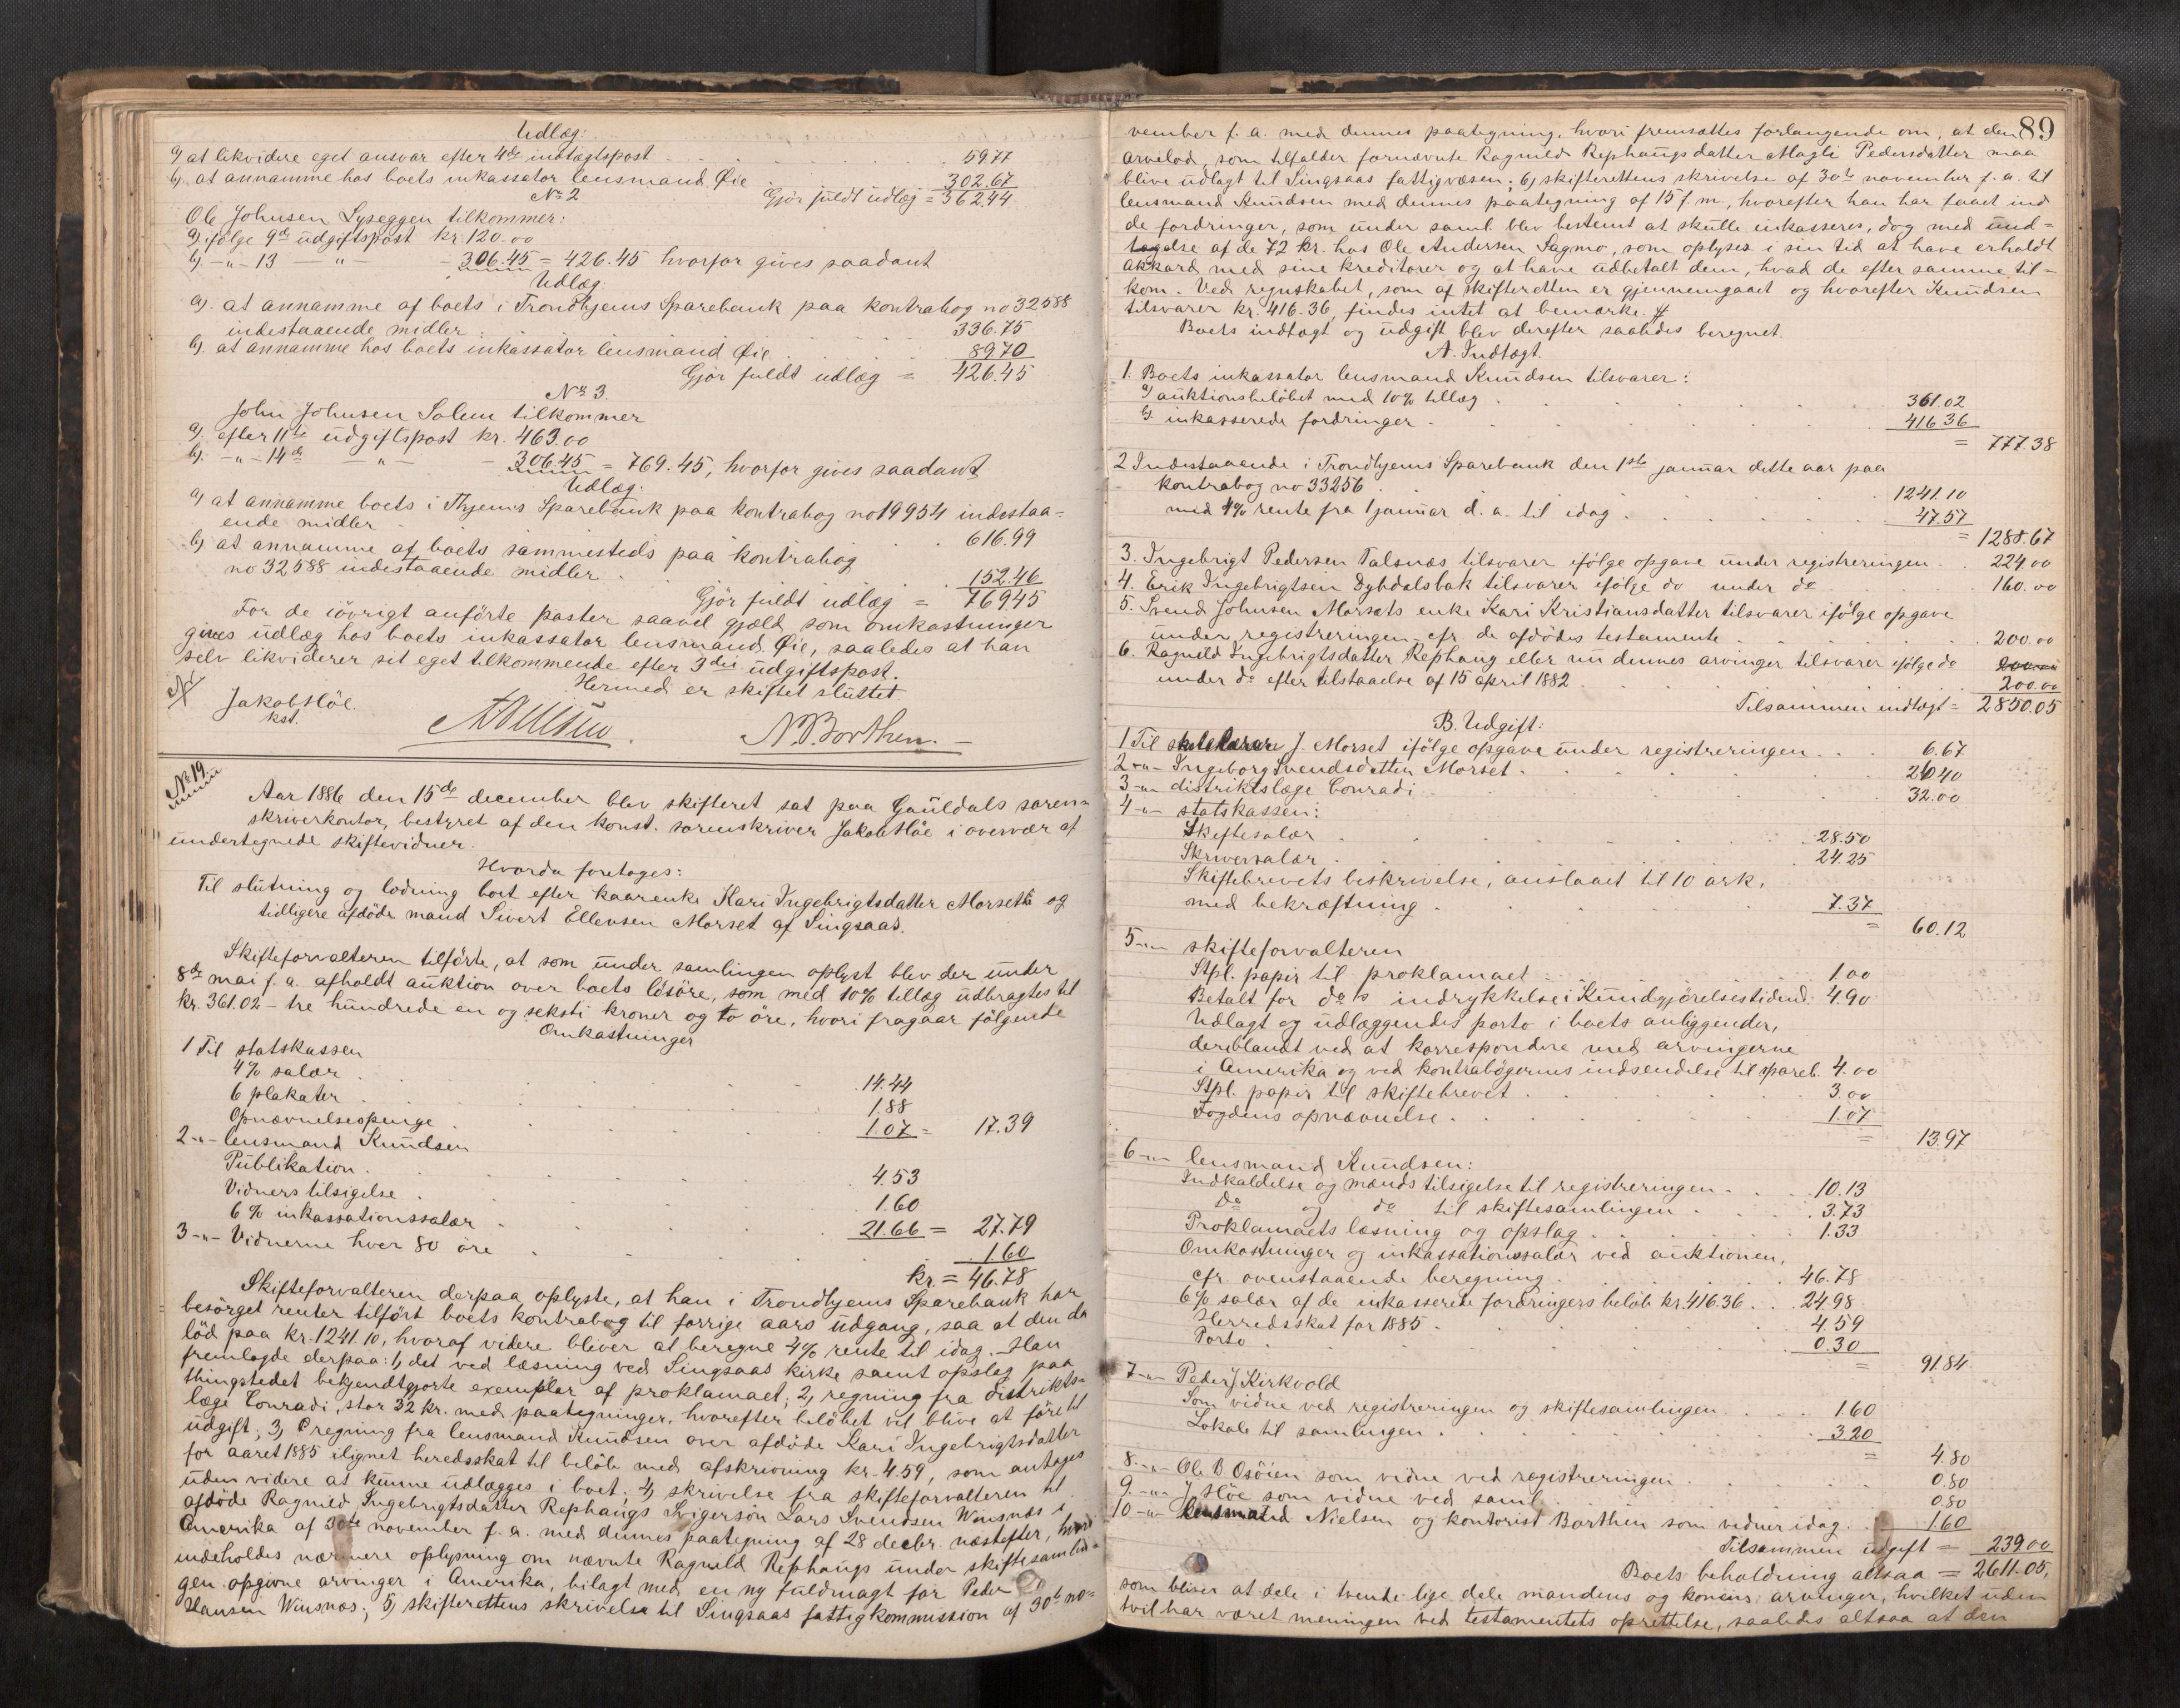 Udlæg:
a) at likvidere eget ansvar efter 4de indtægtspost 59.77
b) at annamme hos boets inkassator lensmand Øie 302.67
Gjør fuldt udlæg = 362.44
No 2
Ole Johnsen Lyseggen tilkommer:
a) ifølge 9de udgiftspost kr. 120.00
b) -"- 13 -"- - 306.45 = 426.45 hvorfor gives saadant
Udlæg:
a). at annamme af boets i Trondhjems Sparebank paa kontrabog no 32588
indestaaende midler 336.75
b). at annamme hos boets inkassator lensmand Øie 89.70
Gjør fuldt udlæg = 426.45
No 3.
John Johnsen Solem tilkommer
a). efter 11te udgiftspost kr. 463.00
b). -"- 14de -"- - 306.45 = 769.45, hvorfor gives saadant
Udlæg:
a) at annamme boets i Thjems Sparebank paa kontrabog no 19954 indestaa=
ende midler 616.99
b) at annamme af boets sammesteds paa kontrabog
no 32588 indestaaende midler 152.46
Gjør fuldt udlæg = 769.45
For de iøvrigt anførte poster saavel gjæld som omkostninger
gives udlæg hos boets inkassator lensmand Øie, saaledes at han
selv likviderer sit eget tilkommende efter 3die udgiftspost.
Hermed er skiftet sluttet
Jakob Höe
kst.
N. B. Borthen.
No 19.
Aar 1886 den 15de december blev skifteret sat paa Gauldals soren=
skriverkontor, bestyret af den konst. sorenskriver Jakob Höe i overvær af
undertegnede skiftevidner.
Hvorda foretoges:
Til slutning og lodning boet efter kaarenke Kari Ingebrigtsdatter Morseth og
tidligere afdøde mand Sivert Ellevsen Morset af Singsaas.
Skifteforvalteren tilførte, at som under samlingen oplyst blev der under
8de mai f. a. afholdt auktion over boets løsøre, som med 10% tillæg udbragtes til
kr. 361.02 - tre hundrede en og seksti kroner og to øre, hvori fragaar følgende
Omkostninger
1 Til statskassen
4% salær 14.44
6 plakater 1.88
Opnævnelsespenge 1.07 = 17.39
2 -"- lensmand Knudsen
Publikation 4.53
Vidners tilsigelse 1.60
6% inkassationssalær 21.66 = 27.79
3 -"- Vidnerne hver 80 øre 1.60
kr. = 46.78
Skifteforvalteren derpaa oplyste, at han i Trondhjems Sparebank har
besørget renter tilført boets kontrabog til forrige aars udgang, saa at den da
lød paa kr. 1241.10, hvoraf videre bliver at beregne 4% rente til idag. Han
fremlagde derpaa: 1, det ved læsning ved Singsaas kirke samt opslag paa
thingstedet bekjendtgjorte exemplar af proklamaet; 2, regning fra distrikts=
læge Conradi, stor 32 kr. med paategninger, hvorefter beløbet vil blive at føre til
udgift; 3, regning fra lensmand Knudsen over afdøde Kari Ingebrigtsdatter
for aaret 1885 ilignet heredsskat til beløb med afskrivning kr. 4.59, som antages
uden videre at kunne udlægges i boet. 4, skrivelse fra skifteforvalteren til
afdøde Ragnild Ingebrigtsdatter Rephaugs Svigersøn Lars Svendsen Winsnæs i
Amerika af 30te november f. a. med dennes paategning af 28 decbr. næstefter, hvori
indeholdes nærmere oplysning om nævnte Ragnild Rephaugs under skiftesamlin=
gen opgivne arvinger i Amerika, bilagt med en ny fuldmagt for Peder
Hansen Winsnæs; 5, skifterettens skrivelse til Singsaas fattigkommission af 30te no=
89
vember f. a. med dennes paategning, hvori fremsættes forlangende om, at den
arvelod, som tilfalder fornævnte Ragnild Rephaugs datter Magli Pedersdatter maa
blive udlagt til Singsaas fattigvæsen; 6, skifterettens skrivelse af 30te november f. a. til
lensmand Knudsen med dennes paategning af 15 f. m., hvorefter han har faaet ind
de fordringer, som under saml. blev bestemt at skulle inkasseres, dog med und=
tagelse af de 72 kr. hos Ole Andersen Sagmo, som oplyses i sin tid at have erholdt
akkord med sine kreditorer og at have udbetalt dem, hvad de efter samme til=
kom. Ved regnskabet, som af skifteretten er gjennemgaaet og hvorefter Knudsen
tilsvarer kr. 416.36, findes intet at bemærke.
Boets indtægt og udgift blev derefter saaledes beregnet.
A. Indtægt.
1. Boets inkassator lensmand Knudsen tilsvarer:
a) auktionsbeløbet med 10% tillæg 361.02
b) inkasserede fordringer 416.36
= 777.38
2 Indestaaende i Trondhjems Sparebank den 1ste januar dette aar paa
kontrabog no 33256 1241.10
med 4% rente fra 1 januar d. a. til idag 47.57
= 1288.67
3. Ingebrigt Pedersen Talsnæs tilsvarer ifølge opgave under registreringen 224.00
4. Erik Ingebrigtsen Dybdalsbak tilsvarer ifølge do under do 160.00
5. Svend Johnsen Morsets enke Kari Kristiansdatter tilsvarer ifølge opgave
under registreringen cfr. de afdødes testamente 200.00
6. Ragnild Ingebrigtsdatter Rephaug eller nu dennes arvinger tilsvarer ifølge do
under do efter tilstaaelse af 15 april 1882 200.00
Tilsammen indtægt = 2850.05
B. Udgift:
1 Til skolelærer J. Morset ifølge opgave under registreringen 6.67
2 -"- Ingeborg Svendsdatter Morset 26.40
3 -"- distriktslæge Conradi 32.00
4 -"- statskassen:
Skiftesalær 28.50
Skriversalær 24.25
Skiftebrevets beskrivelse, anslaaet til 10 ark,
med bekræftning 7.37
= 60.12
5 -"- skifteforvalteren
Stpl. papir til proklamaet 1.00
Betalt for do s indrykkelse i Kundgjørelsestidend. 4.90
Udlagt og udlæggendes porto i boets anliggender,
deriblandt ved at korrespondere med arvingerne
i Amerika og ved kontrabøgernes indsendelse til spareb. 4.00
Stpl. papir til skiftebrevet 3.00
Fogdens opnævnelse 1.07
= 13.97
6 -"- lensmand Knudsen:
Indkaldelse og mænds tilsigelse til registreringen 10.13
do og do til skiftesamlingen 3.73
Proklamaets læsning og opslag 1.33
Omkostninger og inkassationssalær ved auktionen,
cfr. ovenstaaende beregning 46.78
6% salær af de inkasserede fordringers beløb kr. 416.36 24.98
Herredsskat for 1885 4.59
Porto 0.30
= 91.84
7 -"- Peder J Kirkvold
Som vidne ved registreringen og skiftesamlingen 1.60
Lokale til samlingen 3.20
= 4.80
8 -"- Ole B Osöien som vidne ved registreringen 0.80
9 -"- J. Höe som vidne ved saml. 0.80
10 -"- lensmand Nielsen og kontorist Borthen som vidner idag 1.60
Tilsammen udgift = 239.00
Boets beholdning altsaa = 2611.05,
som bliver at dele i tvende lige dele mandens og konens arvinger, hvilket uden
tvil har været meningen ved testamentets oprettelse, saaledes altsaa at den